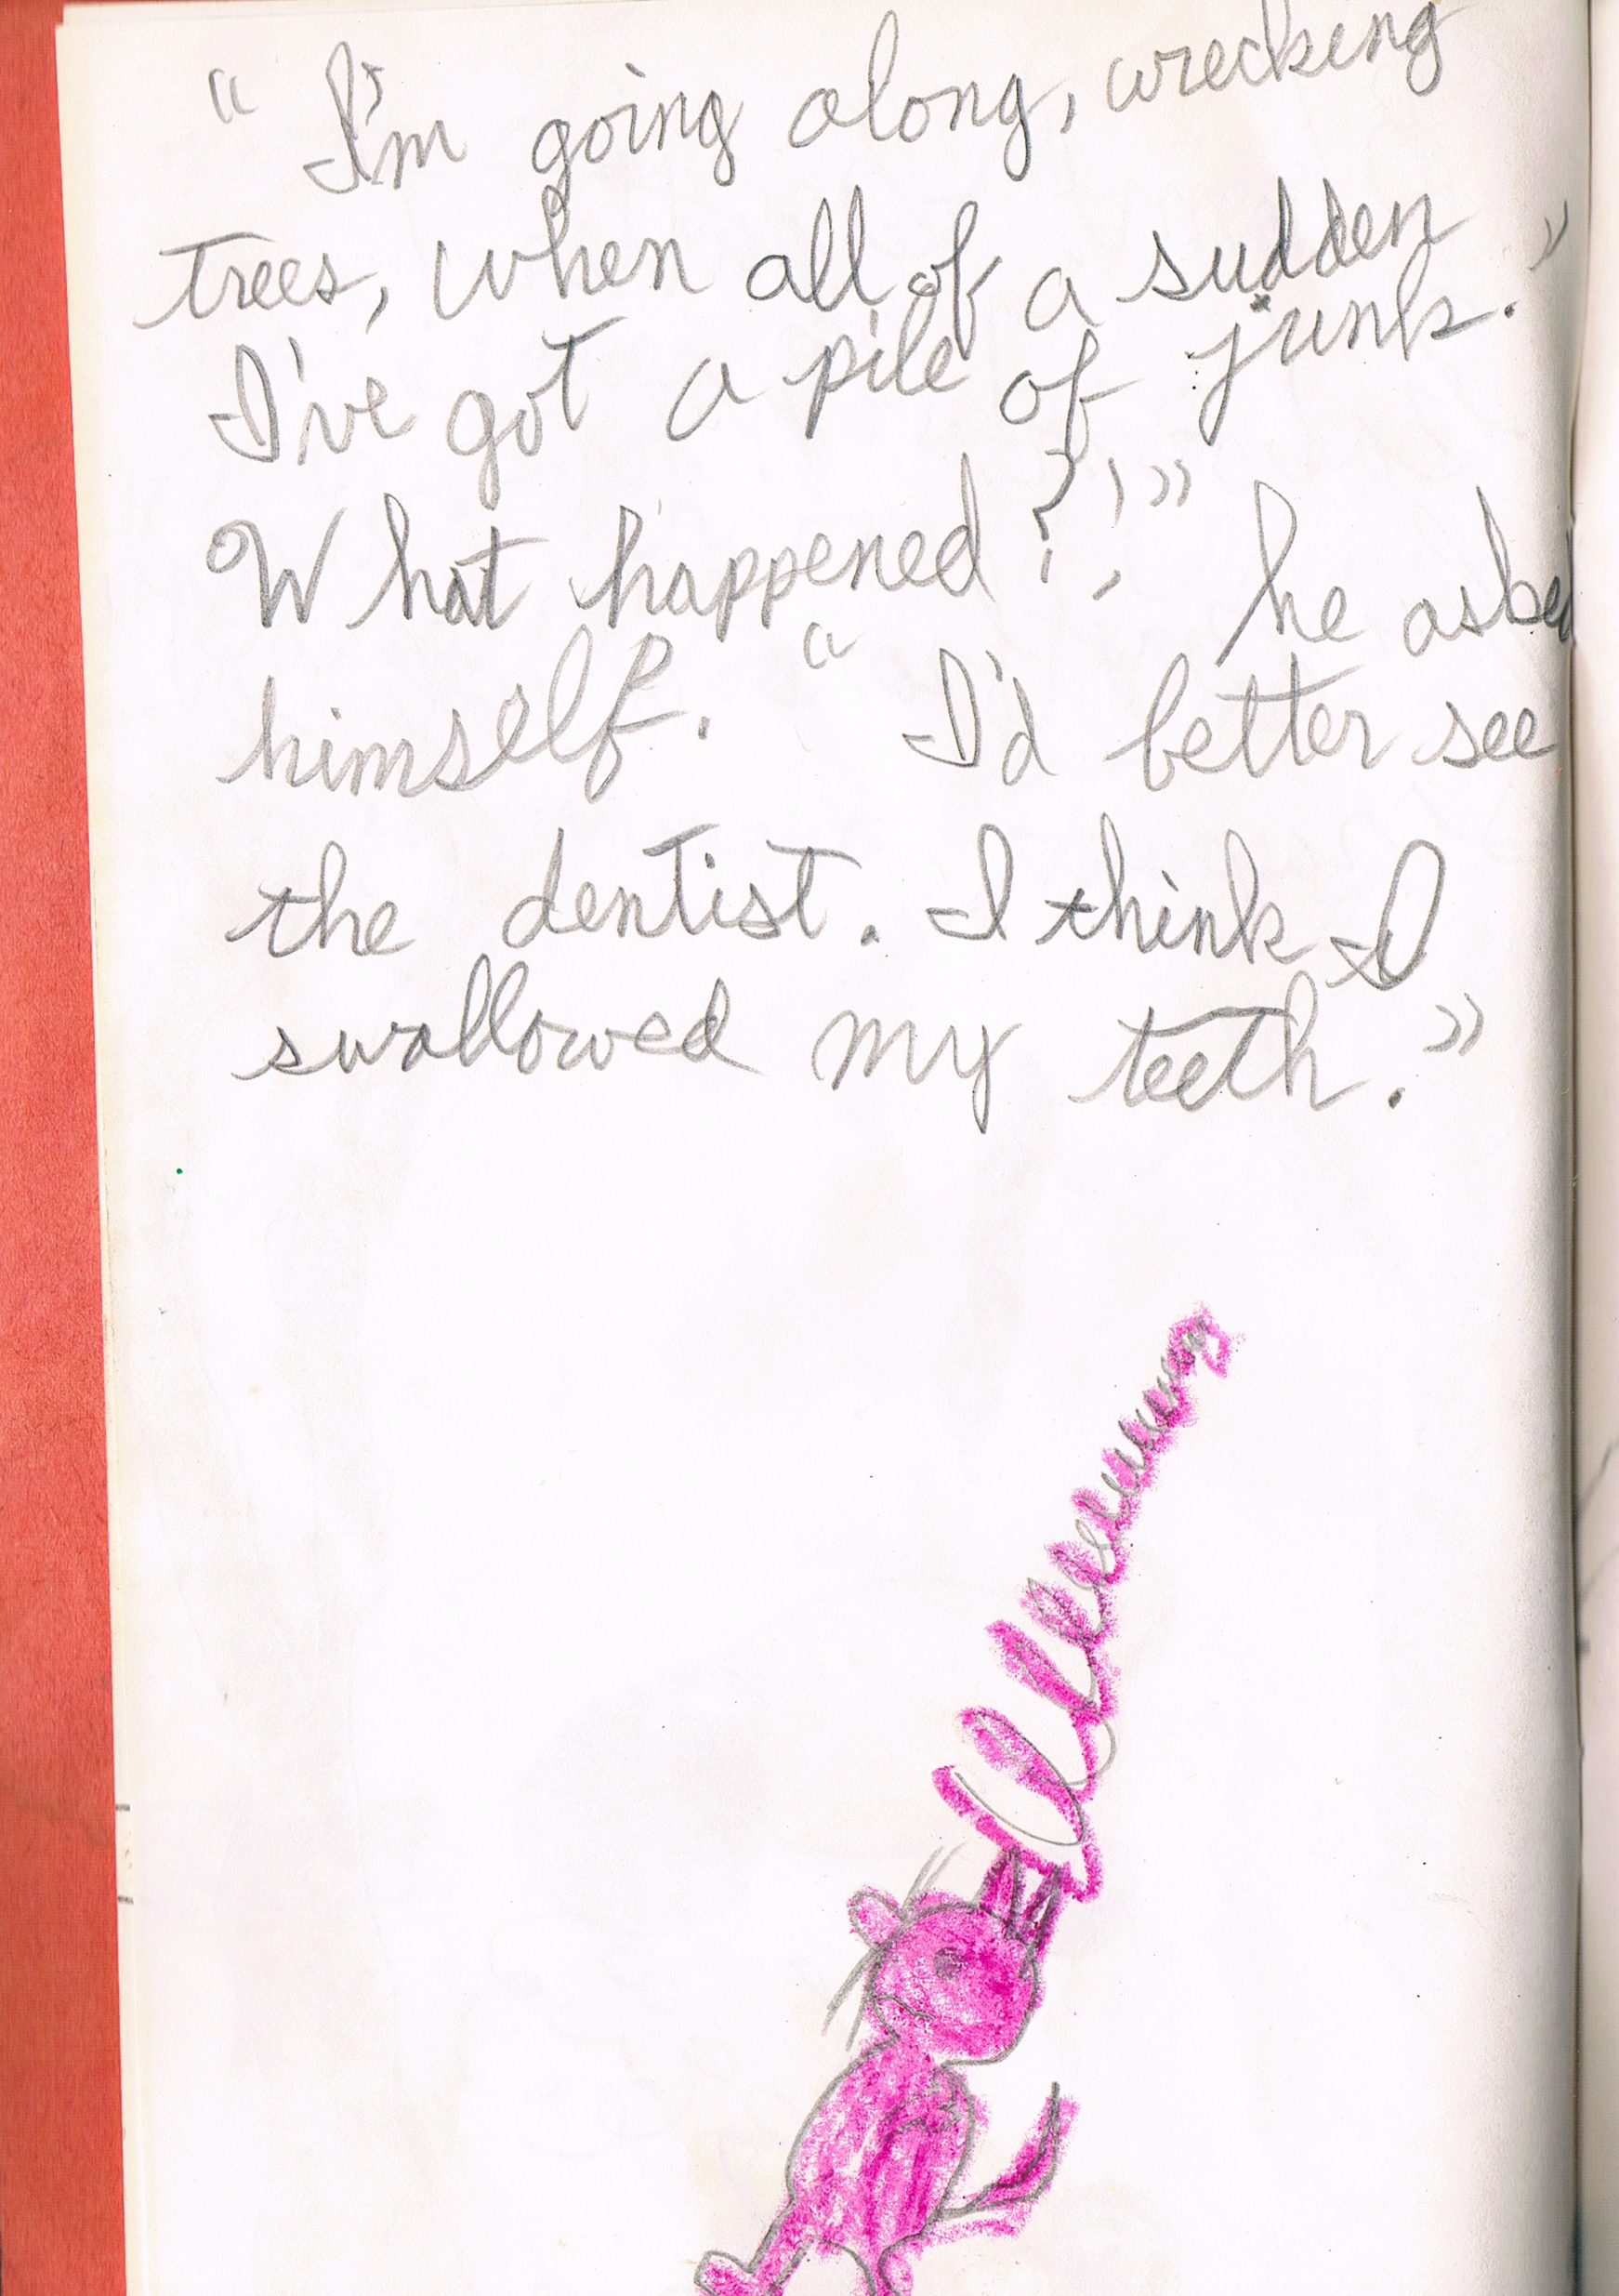 " I'm going along, wrecking
trees, when all of a sudden
I've got a pile of junk."
What happened?!" he asked
himself. " I'd better see
the dentist. I think I
swallowed my teeth."